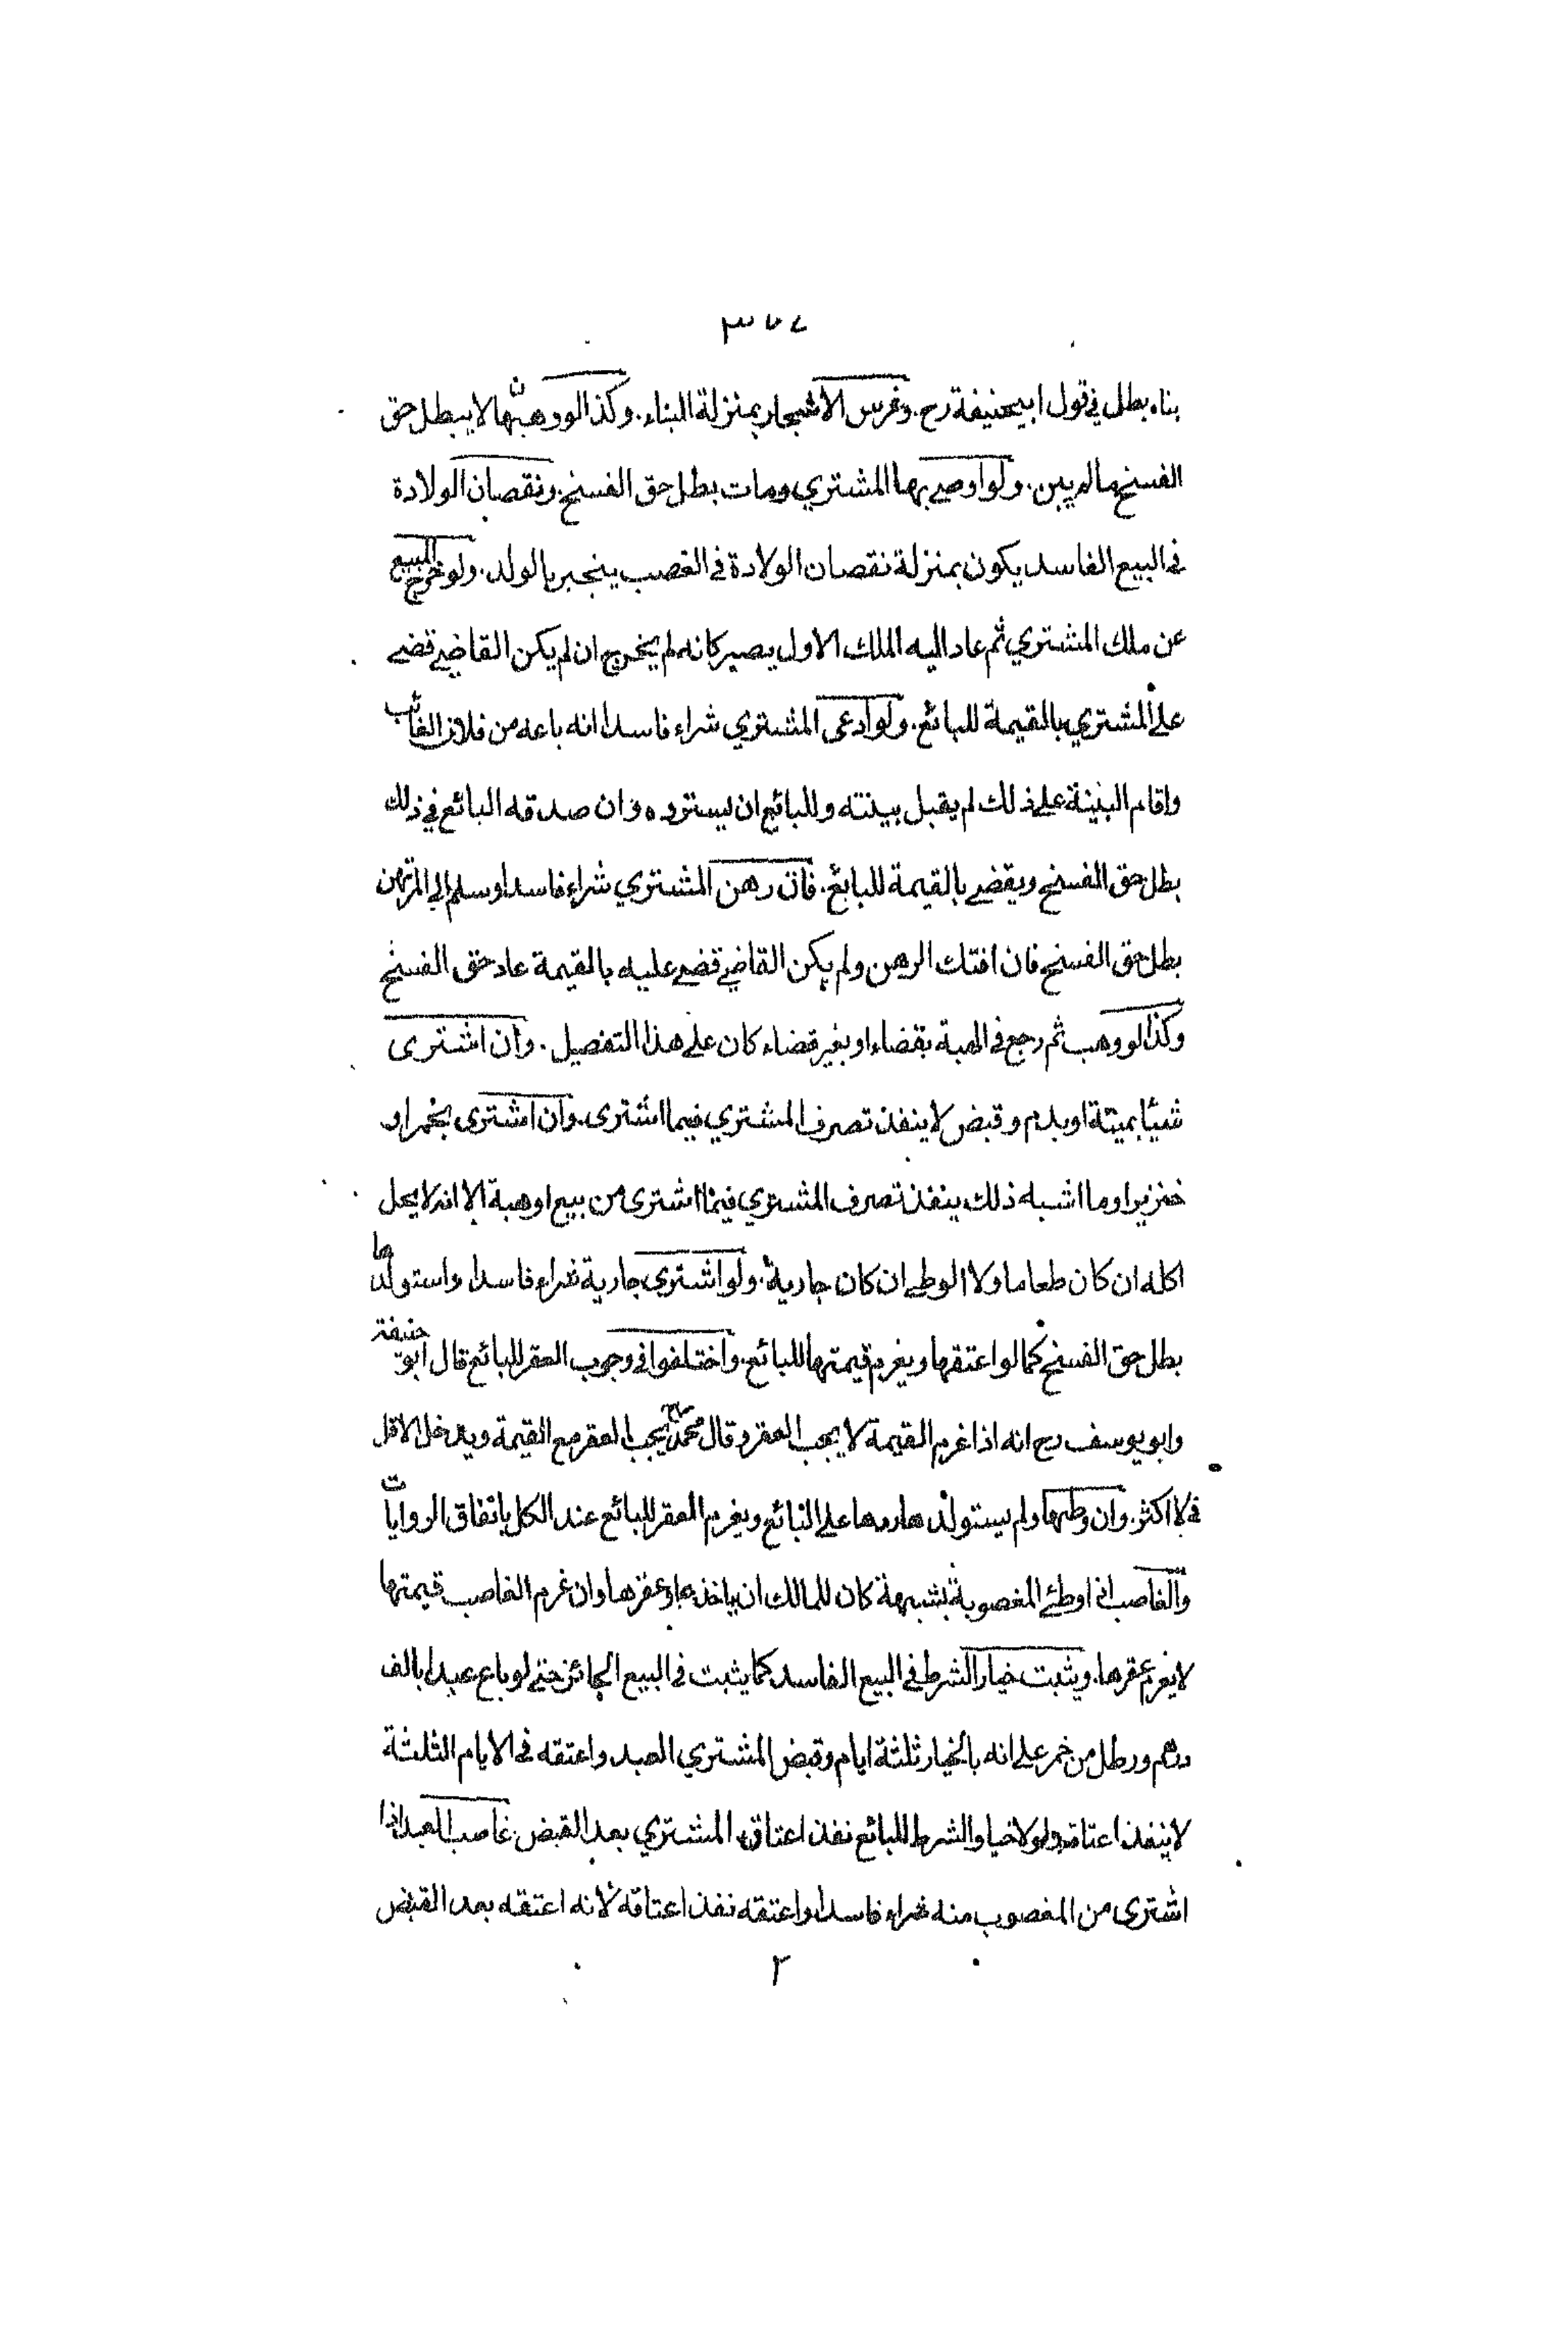 ٣٧٧
بناه بطل في قول ابيحنيفة رح . وغرس الاشجار بمنزلة البناء . وكذا لو وهبها لا يبطل حق
الفسخ مالم يبن . ولو اوصى بها المشتري ومات بطل حق الفسخ . ونقصان الولادة
في البيع الفاسد يكون بمنزلة نقصان الولادة في الغصب ينجبر بالولد . ولو خرج المبيع
عن ملك المشتري ثم عاد اليه الملك الاول يصير كانه لم يخرج ان لم يكن القاضي قضى
على المشتري بالقيمة للبائع . ولو ادعى المشتري شراء فاسدا انه باعه من فلان الغائب
واقام البينة على ذلك لم يقبل بينته وللبائع ان يسترده وان صدقه البائع في ذلك
بطل حق الفسخ ويقضى بالقيمة للبائع . فان رهن المشتري شراء فاسدا وسلم الى المرتهن
بطل حق الفسخ فان افتك الرهن ولم يكن القاضي قضى عليه بالقيمة عاد حق الفسخ
وكذا لو وهب ثم رجع في الهبة بقضاء او بغير قضاء كان على هذا التفصيل . وان اشترى
شيئا بميتة او بدم وقبض لا ينفذ تصرف المشتري فيما اشترى . وان اشترى بخمر او
خنزير او ما اشبه ذلك ينفذ تصرف المشتري فيما اشترى من بيع او هبة الا انه لا يحل
اكله ان كان طعاما ولا الوطئ ان كان جارية . ولو اشترى جارية شراء فاسدا واستولدها
بطل حق الفسخ كما لو اعتقها ويغرم قيمتها للبائع . واختلفوا في وجوب العقر للبائع قال ابو حنيفة
وابو يوسف رح انه اذا غرم القيمة لا يجب العقر وقال محمد رح يجب العقر مع القيمة ويدخل الاقل
في الاكثر . وان وطئها ولم يستولدها ردها على البائع ويغرم العقر للبائع عند الكل باتفاق الروايات
والغاصب اذا وطئ المغصوبة بشبهة كان للمالك ان ياخذها وعقرها وان غرم الغاصب قيمتها
لا يغرم عقرها . ويثبت خيار الشرط في البيع الفاسد كما يثبت في البيع الجائز حتى لو باع عبدا بالف
درهم ورطل من خمر على انه بالخيار ثلثة ايام وقبض المشتري العبد واعتقه في الايام الثلثة
لا ينفذ اعتاقه ولولا خيار الشرط للبائع نفذ اعتاق المشتري بعد القبض . غاصب العبد اذا
اشترى من المغصوب منه شراء فاسدا واعتقه نفذ اعتاقه لانه اعتقه بعد القبض
٢